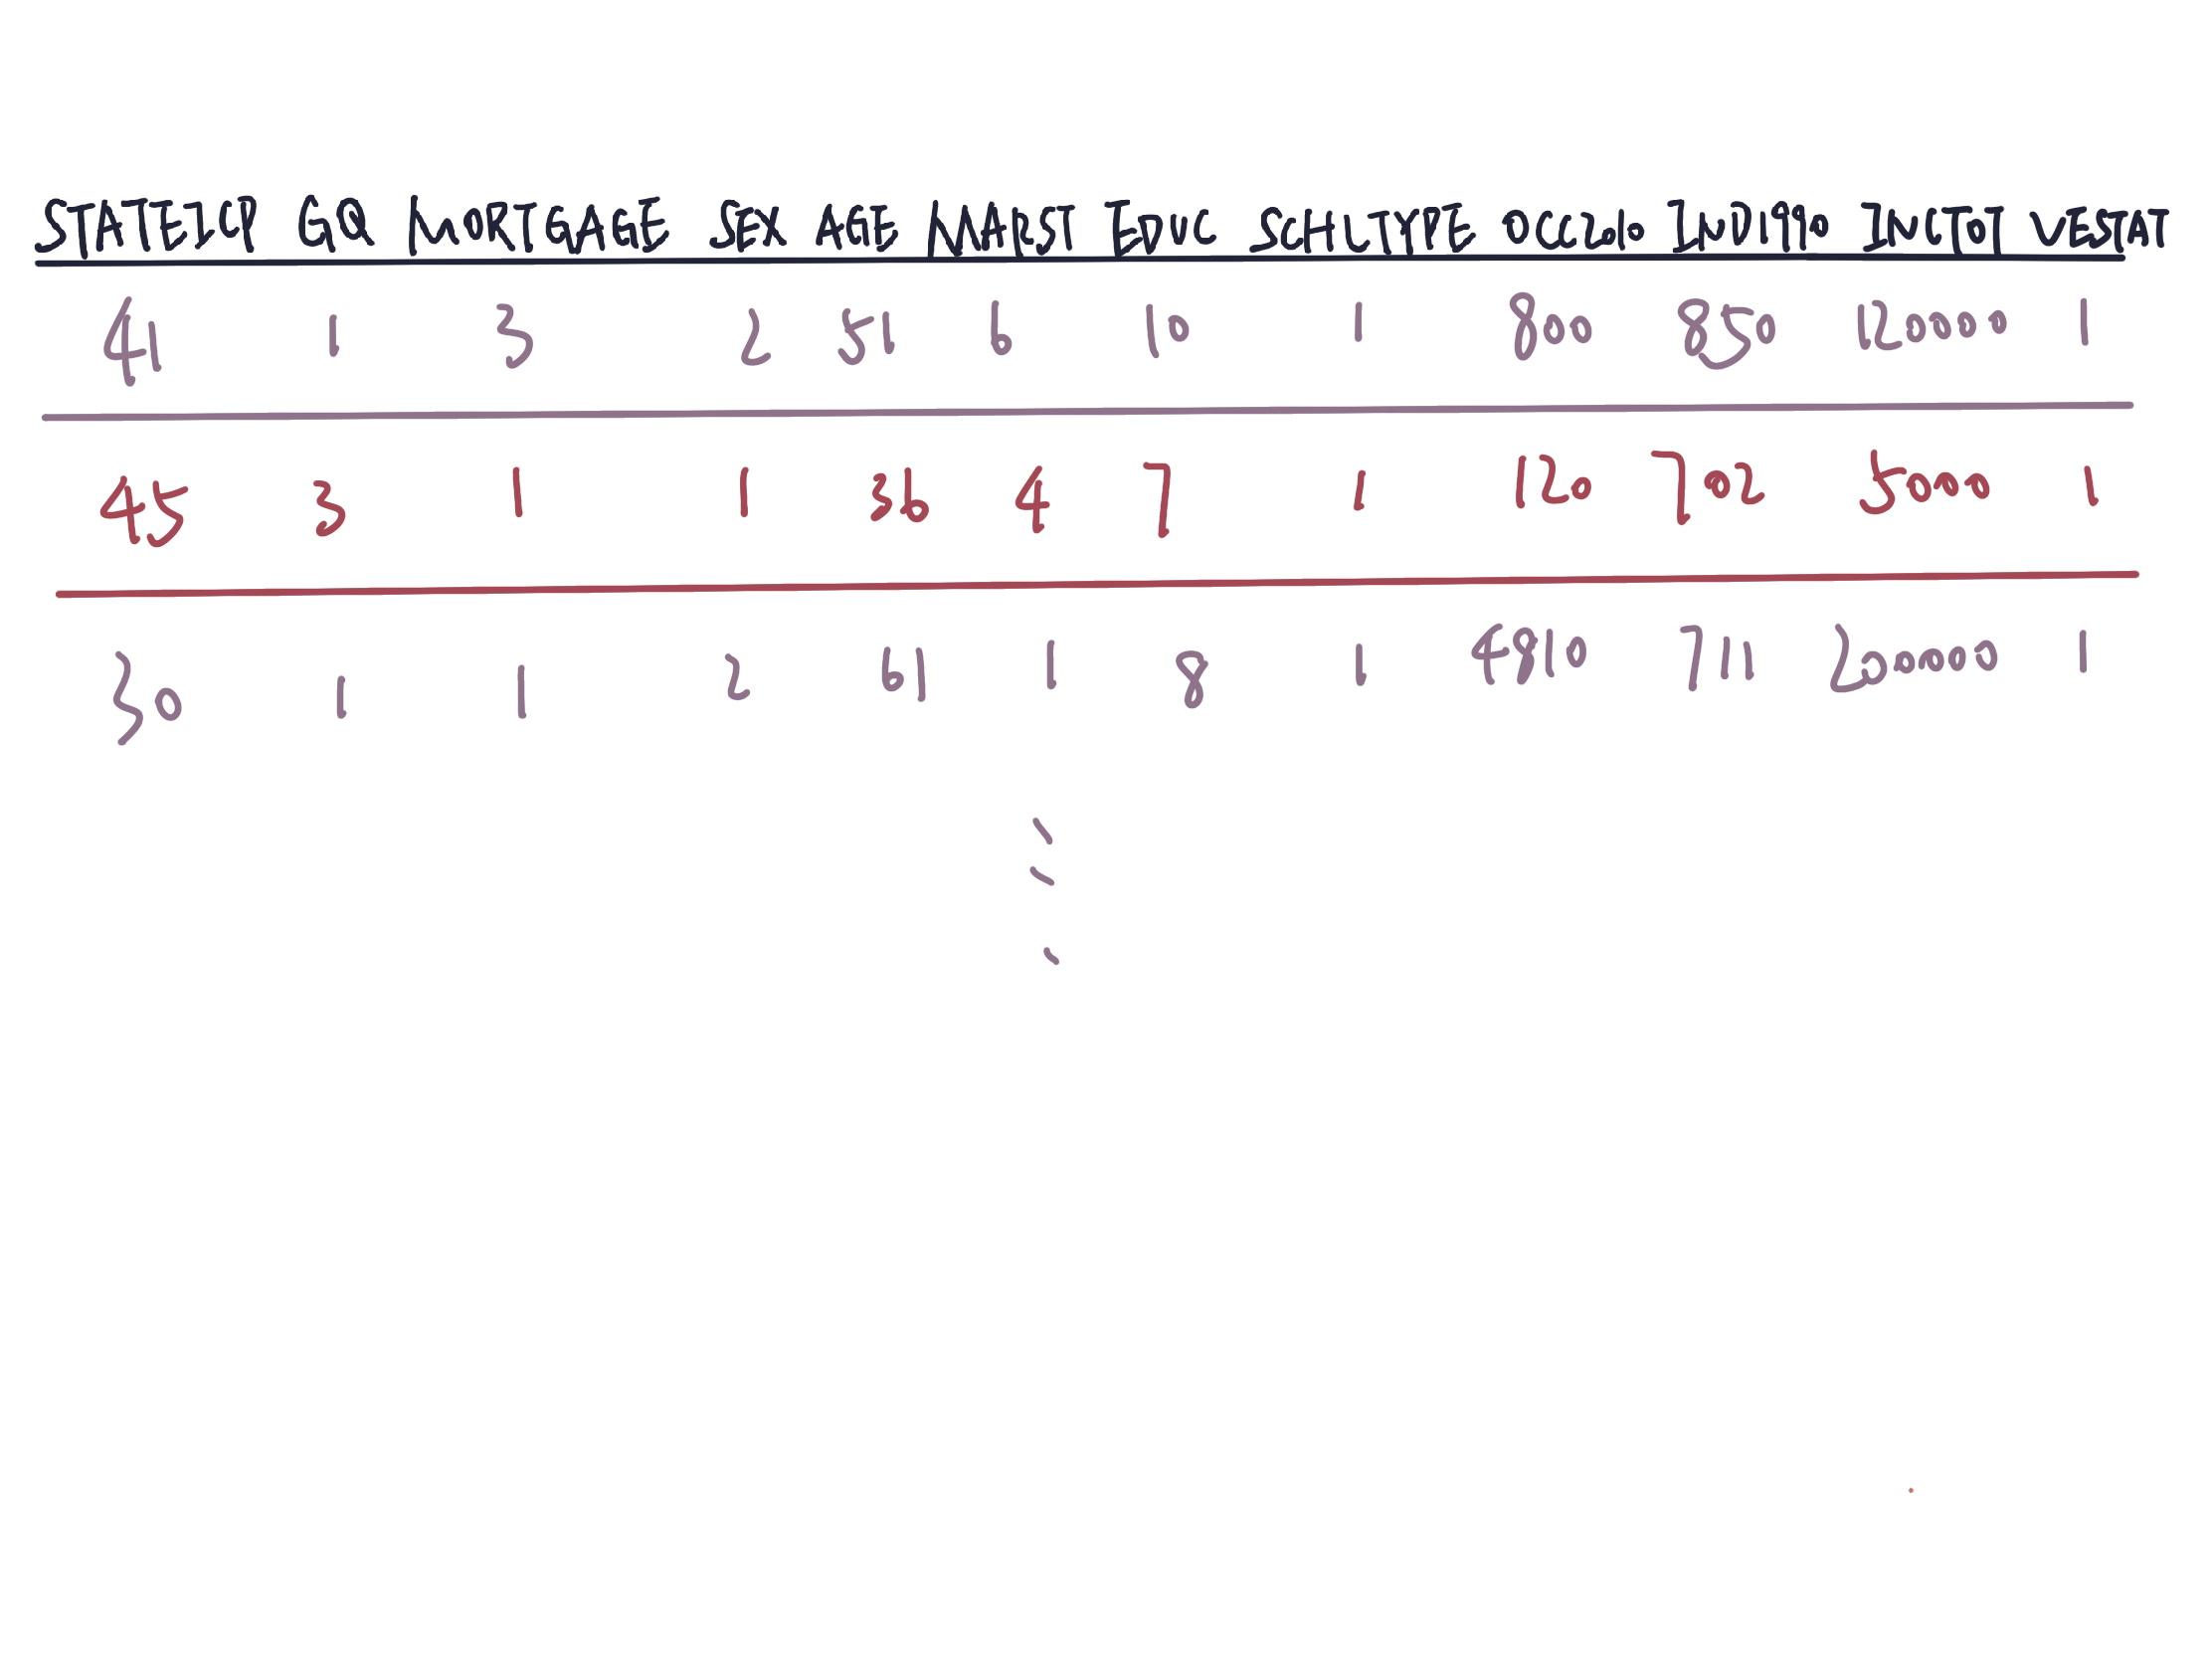 STATEICP GQ MORTGAGE SEX AGE MARST EDUC SCHLTYPE OCC2010 IND1990 INCTOT VESTAT
41 1 3 2 51 6 10 1 800 850 120000 1
45 3 1 1 36 4 7 1 120 702 50000 1
30 1 1 2 61 1 8 1 4810 711 200000 1